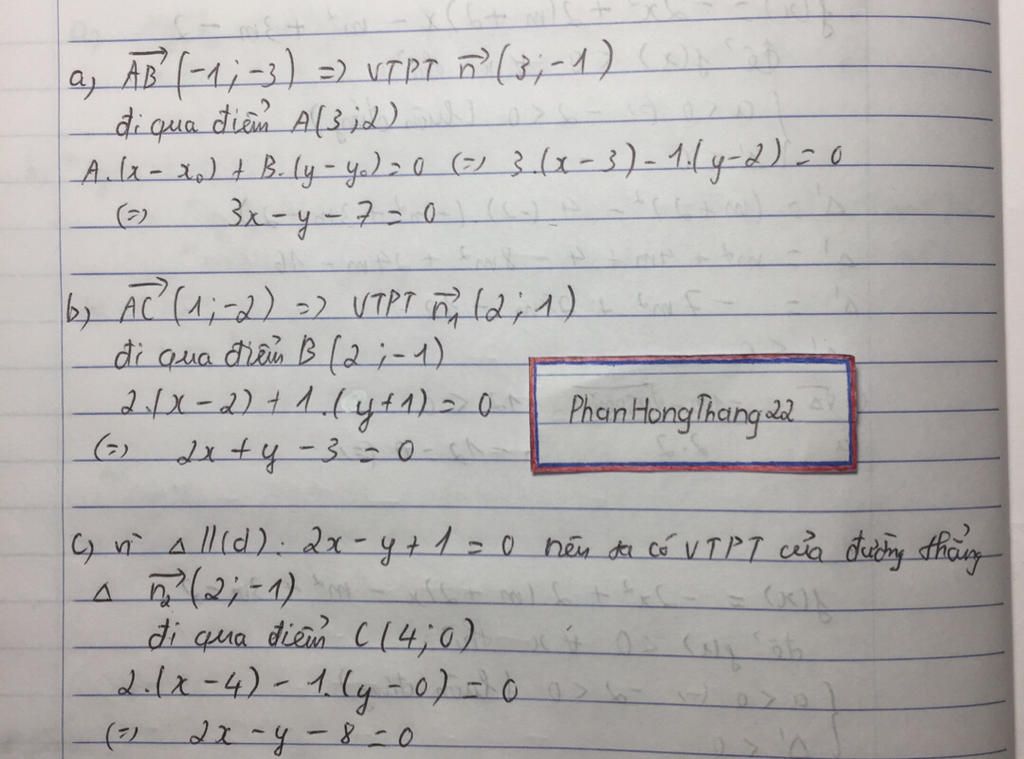 a, AB→ (-1; -3) => VTPT n→ (3; -1)
đi qua điểm A(3;2)
A.(x - x₀) + B.(y - y₀) = 0 (=) 3.(x - 3) - 1.(y - 2) = 0
(=) 3x - y - 7 = 0
b, AC→ (1; -2) => VTPT n₁→ (2; 1)
đi qua điểm B (2; -1)
2.(x - 2) + 1.(y + 1) = 0
(=) 2x + y - 3 = 0
PhanHongThang22
c, vì Δ //(d): 2x - y + 1 = 0 nên ta có VTPT của đường thẳng
Δ n₂→ (2; -1)
đi qua điểm C(4; 0)
2.(x - 4) - 1.(y - 0) = 0
(=) 2x - y - 8 = 0